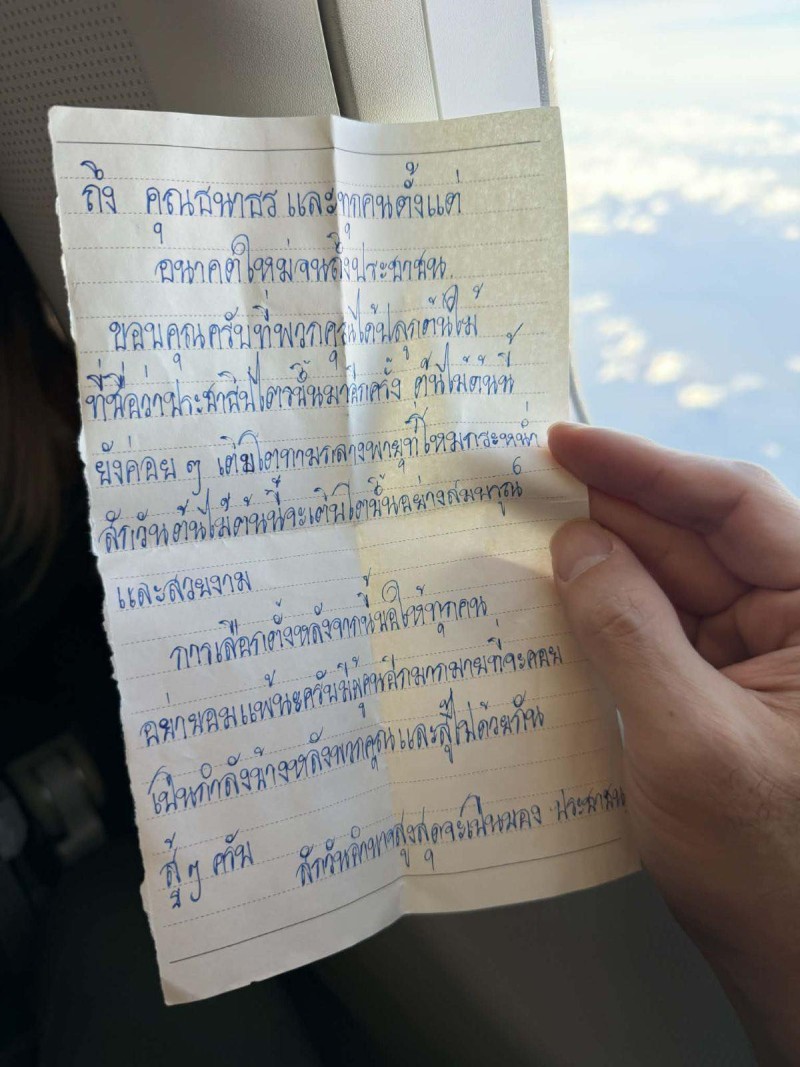 ถึง คุณธนาธร และทุกคนตั้งแต่
อนาคตใหม่จนถึงประชาชน.
ขอบคุณครับที่พวกคุณได้ปลูกต้นไม้
ที่ชื่อว่าประชาธิปไตยขึ้นมาอีกครั้ง ต้นไม้ต้นนี้
ยังค่อย ๆ เติบโตท่ามกลางพายุที่โหมกระหน่ำ
สักวันต้นไม้ต้นนี้จะเติบโตขึ้นอย่างสมบรูณ์
และสวยงาม
การเลือกตั้งหลังจากนี้ขอให้ทุกคน
อย่ายอมแพ้นะครับมีผู้คนอีกมากมายที่จะคอย
เป็นกำลังข้างหลังพวกคุณและสู้ไปด้วยกัน
สู้ ๆ ครับ สักวันอำนาจสูงสุดจะเป็นของ ประชาชน